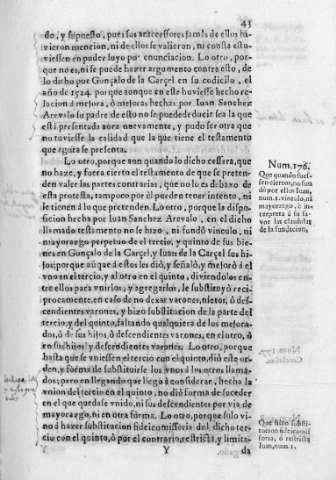 43
do, y supuesto, pues sus antecessores jamas de ellos hi-
zieron mencion, ni de ellos se valieron, ni consta estu-
viessen en poder suyo por enunciacion. Lo otro, por-
que no es, ni se puede hazer argumento contra esto, de
lo dicho por Gonçalo de la Carçel en su codicilo, el
año de 1524. porque aunque en este huviesse hecho re-
lacion à mejora, ò mejoras hechas por Iuan Sanchez
Arevalo su padre de esto no se puede deducir sea la que
està presentada aora nuevamente, y pudo ser otra que
no tuviesse la calidad que la que tiene el testamento
que agora se presenta.
Lo otro, porque aun quando lo dicho cessara, que
no haze, y fuera cierto el testamento de que se preten-
den valer las partes contrarias, que no lo es debaxo de
esta protesta, tampoco por èl pueden tener intento, ni
le tienen à lo que pretenden. Lo otro, porque la dispo-
sicion hecha por Iuan Sanchez Arevalo, en el dicho
llamado testamento no se hizo, ni fundò vinculo, ni
mayorazgo perpetuo de el tercio, y quinto de sus bie-
nes en Gonçalo de la Carçel, y Iuan de la Carçel sus hi-
jos; porque aunque à estos les diò, y señalò, y mejorò à el
vno en el tercio, y al otro en el quinto, diviendolos en-
tre ellos para vnirlos, y agregarlos, le substituyò reci-
procamente, en caso de no dexar varones, nietos, ò des-
cendientes varones, y hizo substitucion de la parte del
tercio, y del quinto, faltando qualquiera de los mejora-
dos, ò de sus hijos, ò descendientes varones, en el otro, ò
en sus hijos, y descendientes varones. Lo otro, porque
hasta que se vniessen el tercio con el quinto, diò este or-
den, y forma de substituirse los vnos à los otros llama-
dos; pero en llegando que llegò à considerar, hecha la
vnion del tercio en el quinto, no diò forma de suceder
en el que quedasse vnido, ni sus descendientes por via de
mayorazgo, ni en otra forma. Lo otro, porque solo vi-
no à hazer substitucion fideicomissoria del dicho ter-
cio con el quinto, ò por el contrario, restricta, y limita-
Y
da
Num. 178.
Que quando fues-
se cierto, no fun-
dò por ellos Iuan,
num. 1. vinculo, ni
mayorazgo, è in-
terpreta à su fa-
vor las clausulas
de la fundacion.
Que hizo substi-
tucion fideicomis-
soria, ò restricta
Iuan, num. 1.